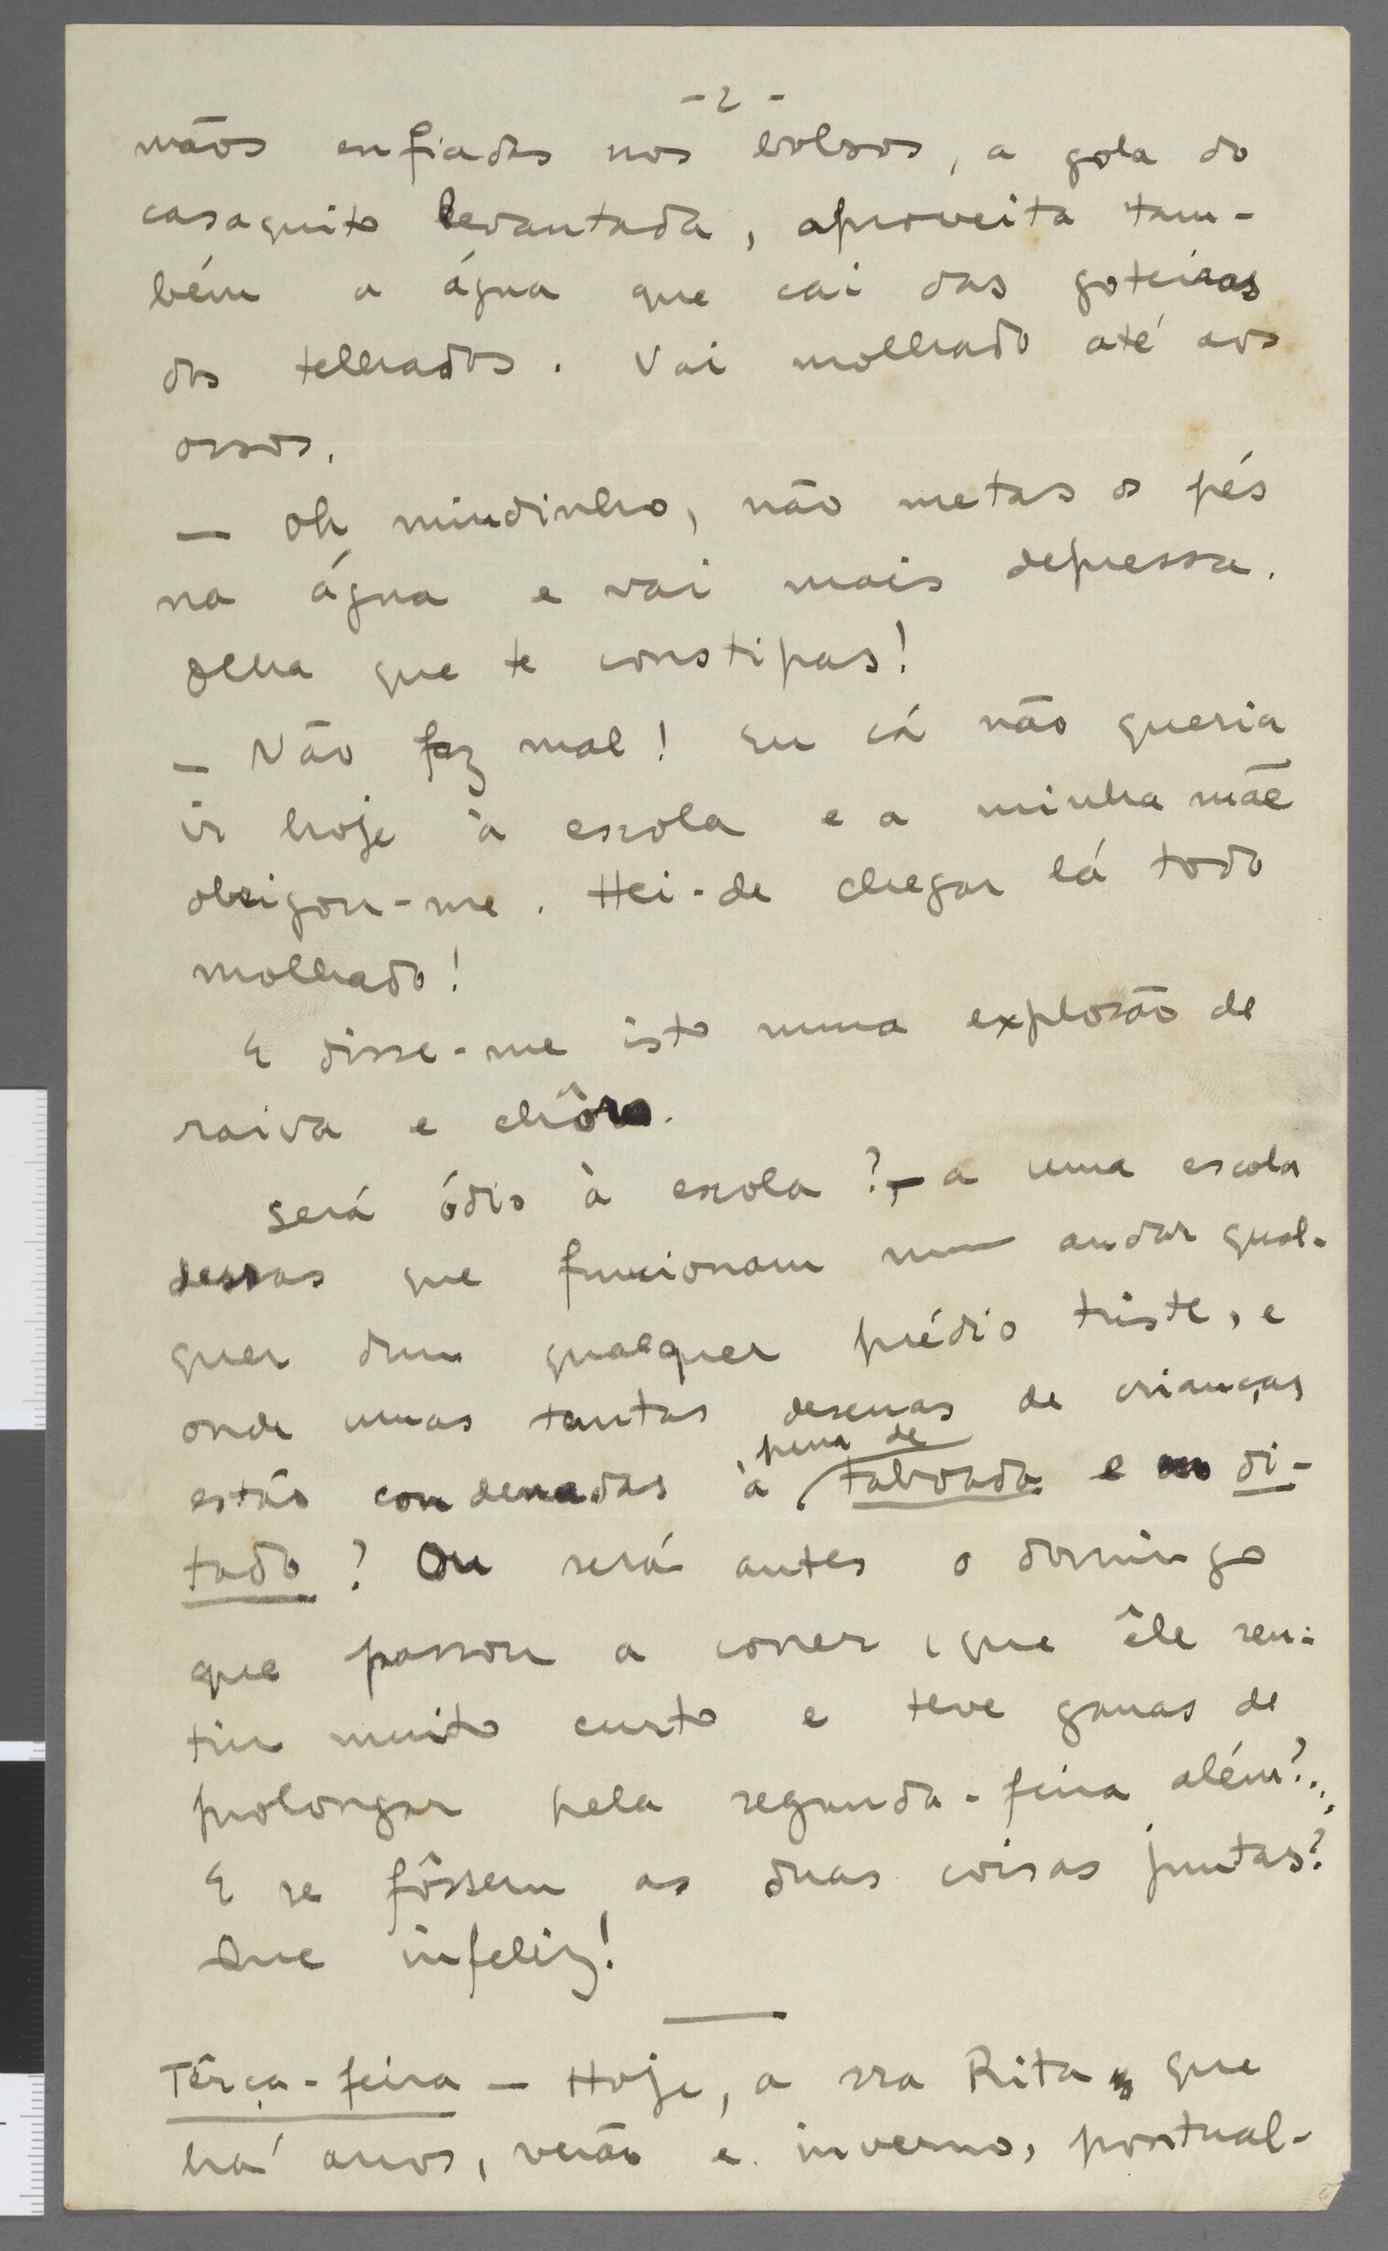 - 2 -
mãos enfiadas nos bolsos, a gola do
casaquito levantada, aproveita tam-
bém a água que cai das goteiras
dos telhados. Vai molhado até aos
ossos.
— Oh miudinho, não metas os pés
na água e vai mais depressa.
Olha que te constipas!
— Não faz mal! Eu cá não queria
ir hoje à escola e a minha mãe
obrigou-me. Hei-de chegar lá todo
molhado!
E disse-me isto numa explosão de
raiva e chôro.
Será ódio à escola? — a uma escola
dessas que funcionam num andar qual-
quer dum qualquer prédio triste, e
onde umas tantas desenas de crianças
pena de
estão condenadas à taboada e di-
tado? Ou será antes o domingo
que passou a correr, que êle sen-
tiu muito curto e teve ganas de
prolongar pela segunda-feira além?..
E se fôssem as duas coisas juntas?
Que infeliz!
Têrça-feira — Hoje, a sra Rita, que
há anos, verão e inverno, pontual-